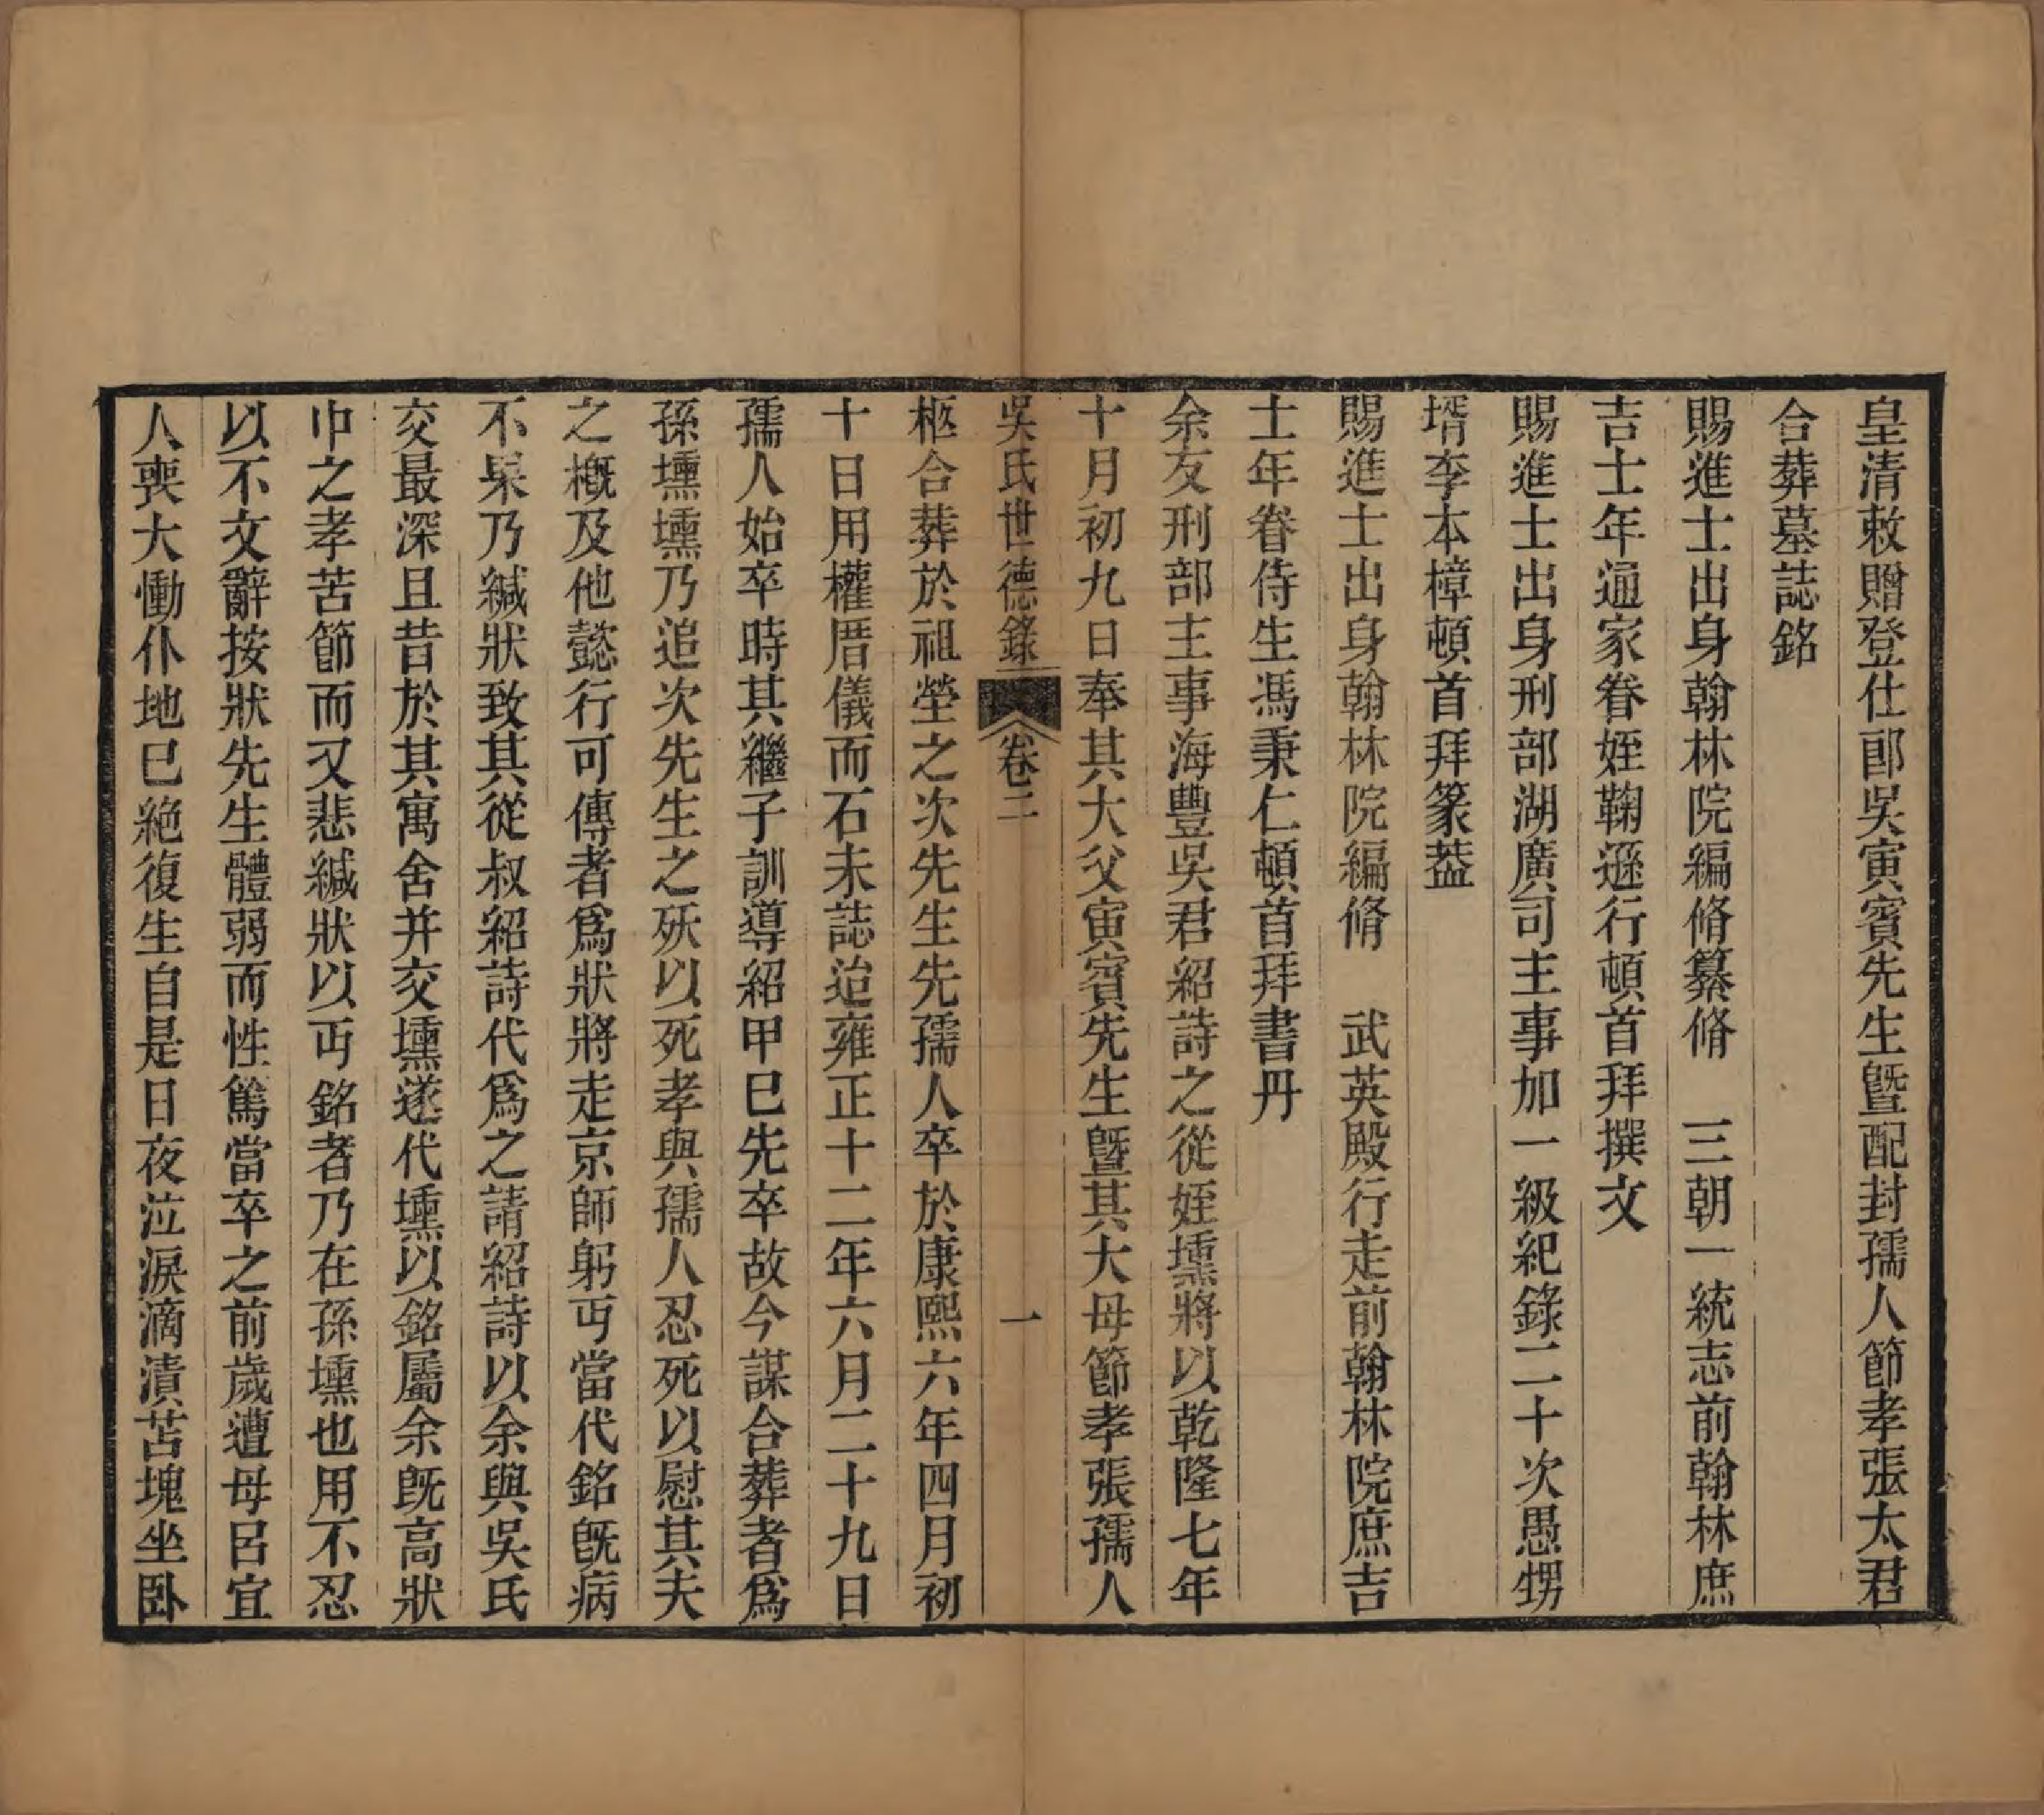 皇清敕贈登仕郎吳寅賓先生曁配封孺人節孝張太君
合葬墓誌銘
賜進士出身翰林院編脩纂脩　三朝一統志前翰林庶
吉士年通家眷姪鞠遜行頓首拜撰文
賜進士出身刑部湖廣司主事加一級紀錄二十次愚甥
壻李本樟頓首拜篆葢
賜進士出身翰林院編脩　武英殿行走前翰林院庶吉
士年眷侍生馮秉仁頓首拜書丹
余友刑部主事海豐吳君紹詩之從姪壎將以乾隆七年
十月初九日奉其大父寅賓先生曁其大母節孝張孺人
吳氏世德錄　卷二　一
柩合葬於祖塋之次先生先孺人卒於康熙六年四月初
十日用權厝儀而石未誌迨雍正十二年六月二十九日
孺人始卒時其繼子訓導紹甲巳先卒故今謀合葬者爲
孫壎壎乃追次先生之殀以死孝與孺人忍死以慰其夫
之槪及他懿行可傳者爲狀將走京師躬丐當代銘旣病
不果乃緘狀致其從叔紹詩代爲之請紹詩以余與吳氏
交最深且昔於其寓舍并交壎遂代壎以銘屬余旣高狀
中之孝苦節而又悲緘狀以丐銘者乃在孫壎也用不忍
以不文辭按狀先生體弱而性篤當卒之前歲遭母呂宜
人喪大慟仆地巳絶復生自是日夜泣淚滴漬苫塊坐臥